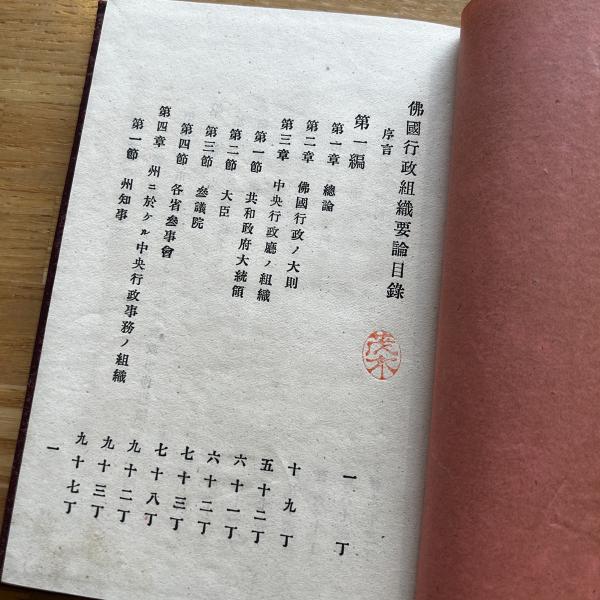 佛國行政組織要論目錄
序言 一丁
第一編
第一章 總論 十九丁
第二章 佛國行政ノ大則 五十二丁
第三章 中央行政廳ノ組織 六十一丁
第一節 共和政府大統領 六十二丁
第二節 大臣 七十三丁
第三節 參議院 七十八丁
第四節 各省參事會 九十二丁
第四章 州ニ於ケル中央行政事務ノ組織 九十三丁
第一節 州知事 九十七丁
一
茂木